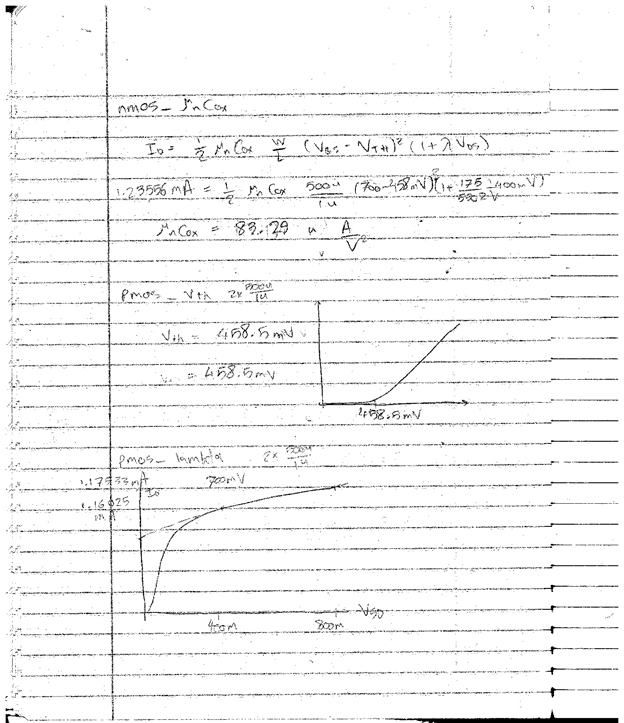 nmos - μnCox
ID = 1/2 μn Cox W/L (VGS - VTH)² (1+λVDS)
1.23556 mA = 1/2 μn Cox 500u/1u (700-458mV)² (1+ 400mV)
μnCox = 83.29 u A/V²
Pmos - Vth 2x 500u/1u
Vth = 458.5mV
= 458.5mV
458.5mV
pmos - lambda 2x 500u/1u
1.17533 mA
ID
700mV
1.16025 mA
VSD
400m
800m